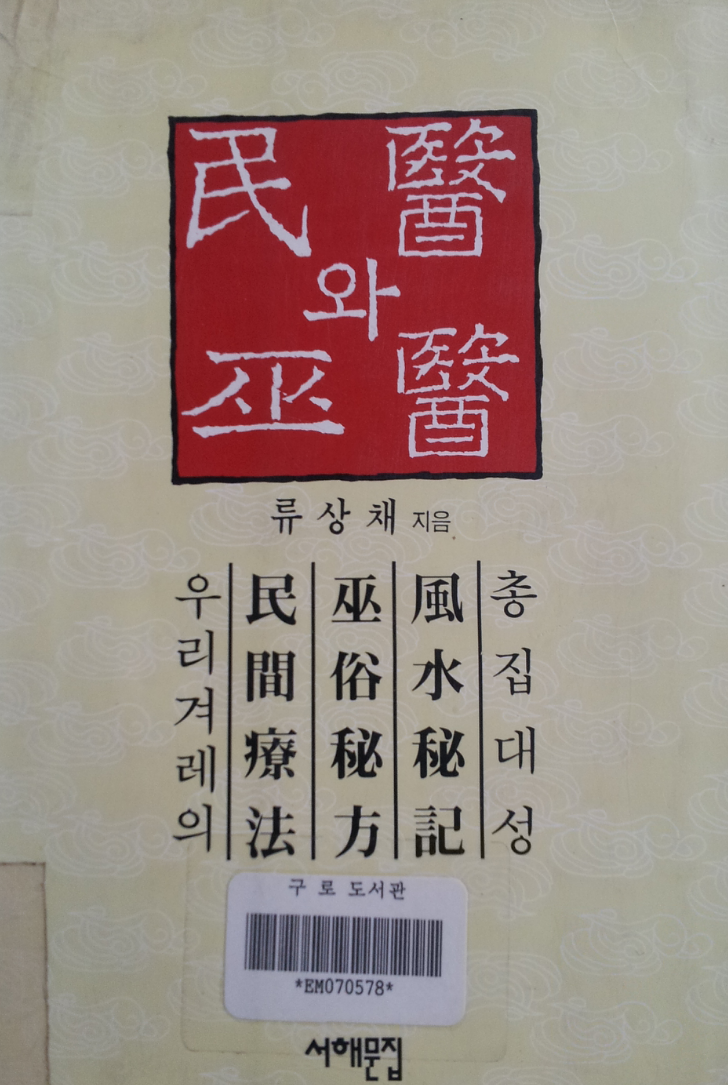 民醫
와
巫醫
류상채 지음
우리겨레의
民間療法
巫俗秘方
風水秘記
총집대성
구로도서관
*EM070578*
서해문집